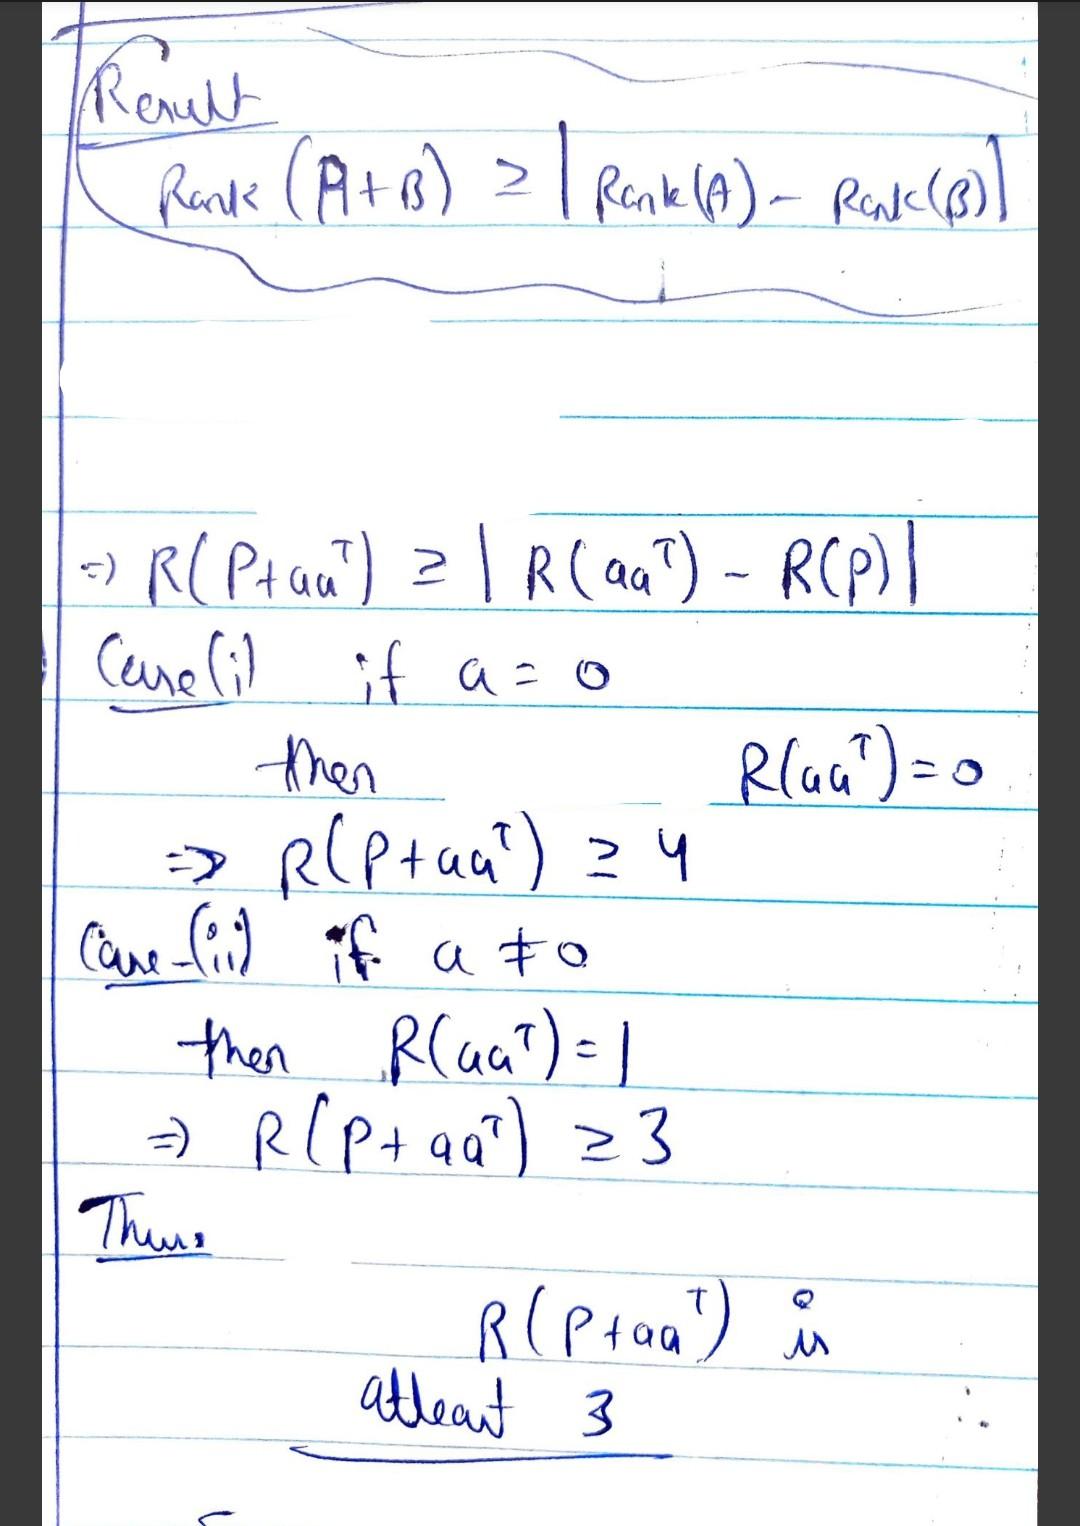 Result
Rank (A+B) ≥ | Rank(A) - Rank(B) |
⇒ R(P+aaᵀ) ≥ | R(aaᵀ) - R(P) |
Case(i) if a = 0
then R(aaᵀ) = 0
⇒ R(P+aaᵀ) ≥ 4
Case-(ii) if a ≠ 0
then R(aaᵀ) = 1
⇒ R(P+aaᵀ) ≥ 3
Thus
R(P+aaᵀ) is
atleast 3